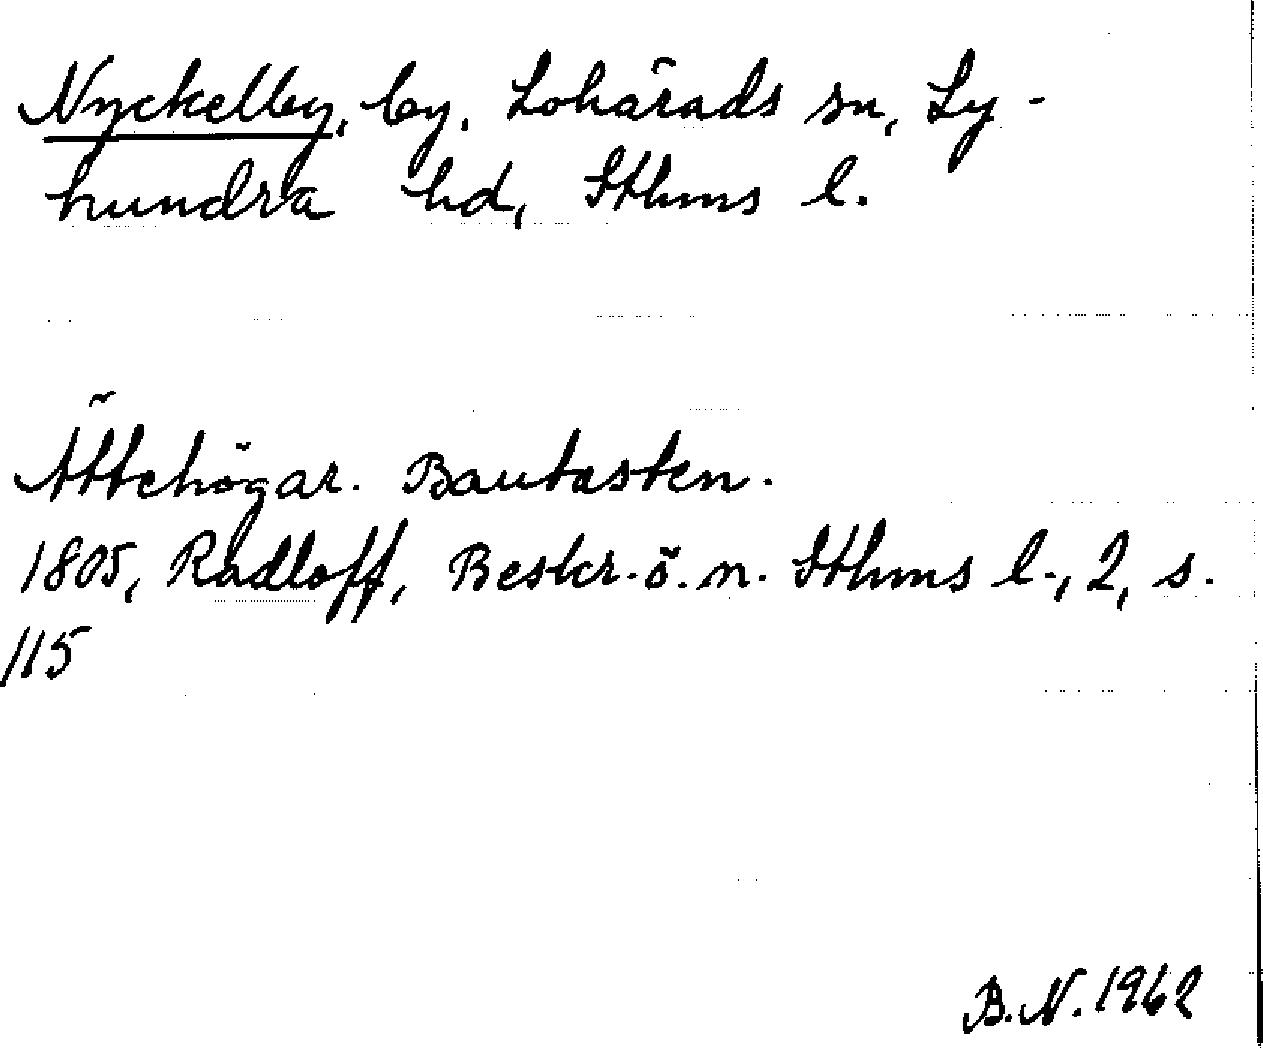 Nyckelby, by, Lohärads sn, Ly-
hundra hd, Sthms l.
Ättehögar. Bautasten.
1805, Radloff, Beskr. ö. n. Sthms l., 2, s.
115
B.N. 1962